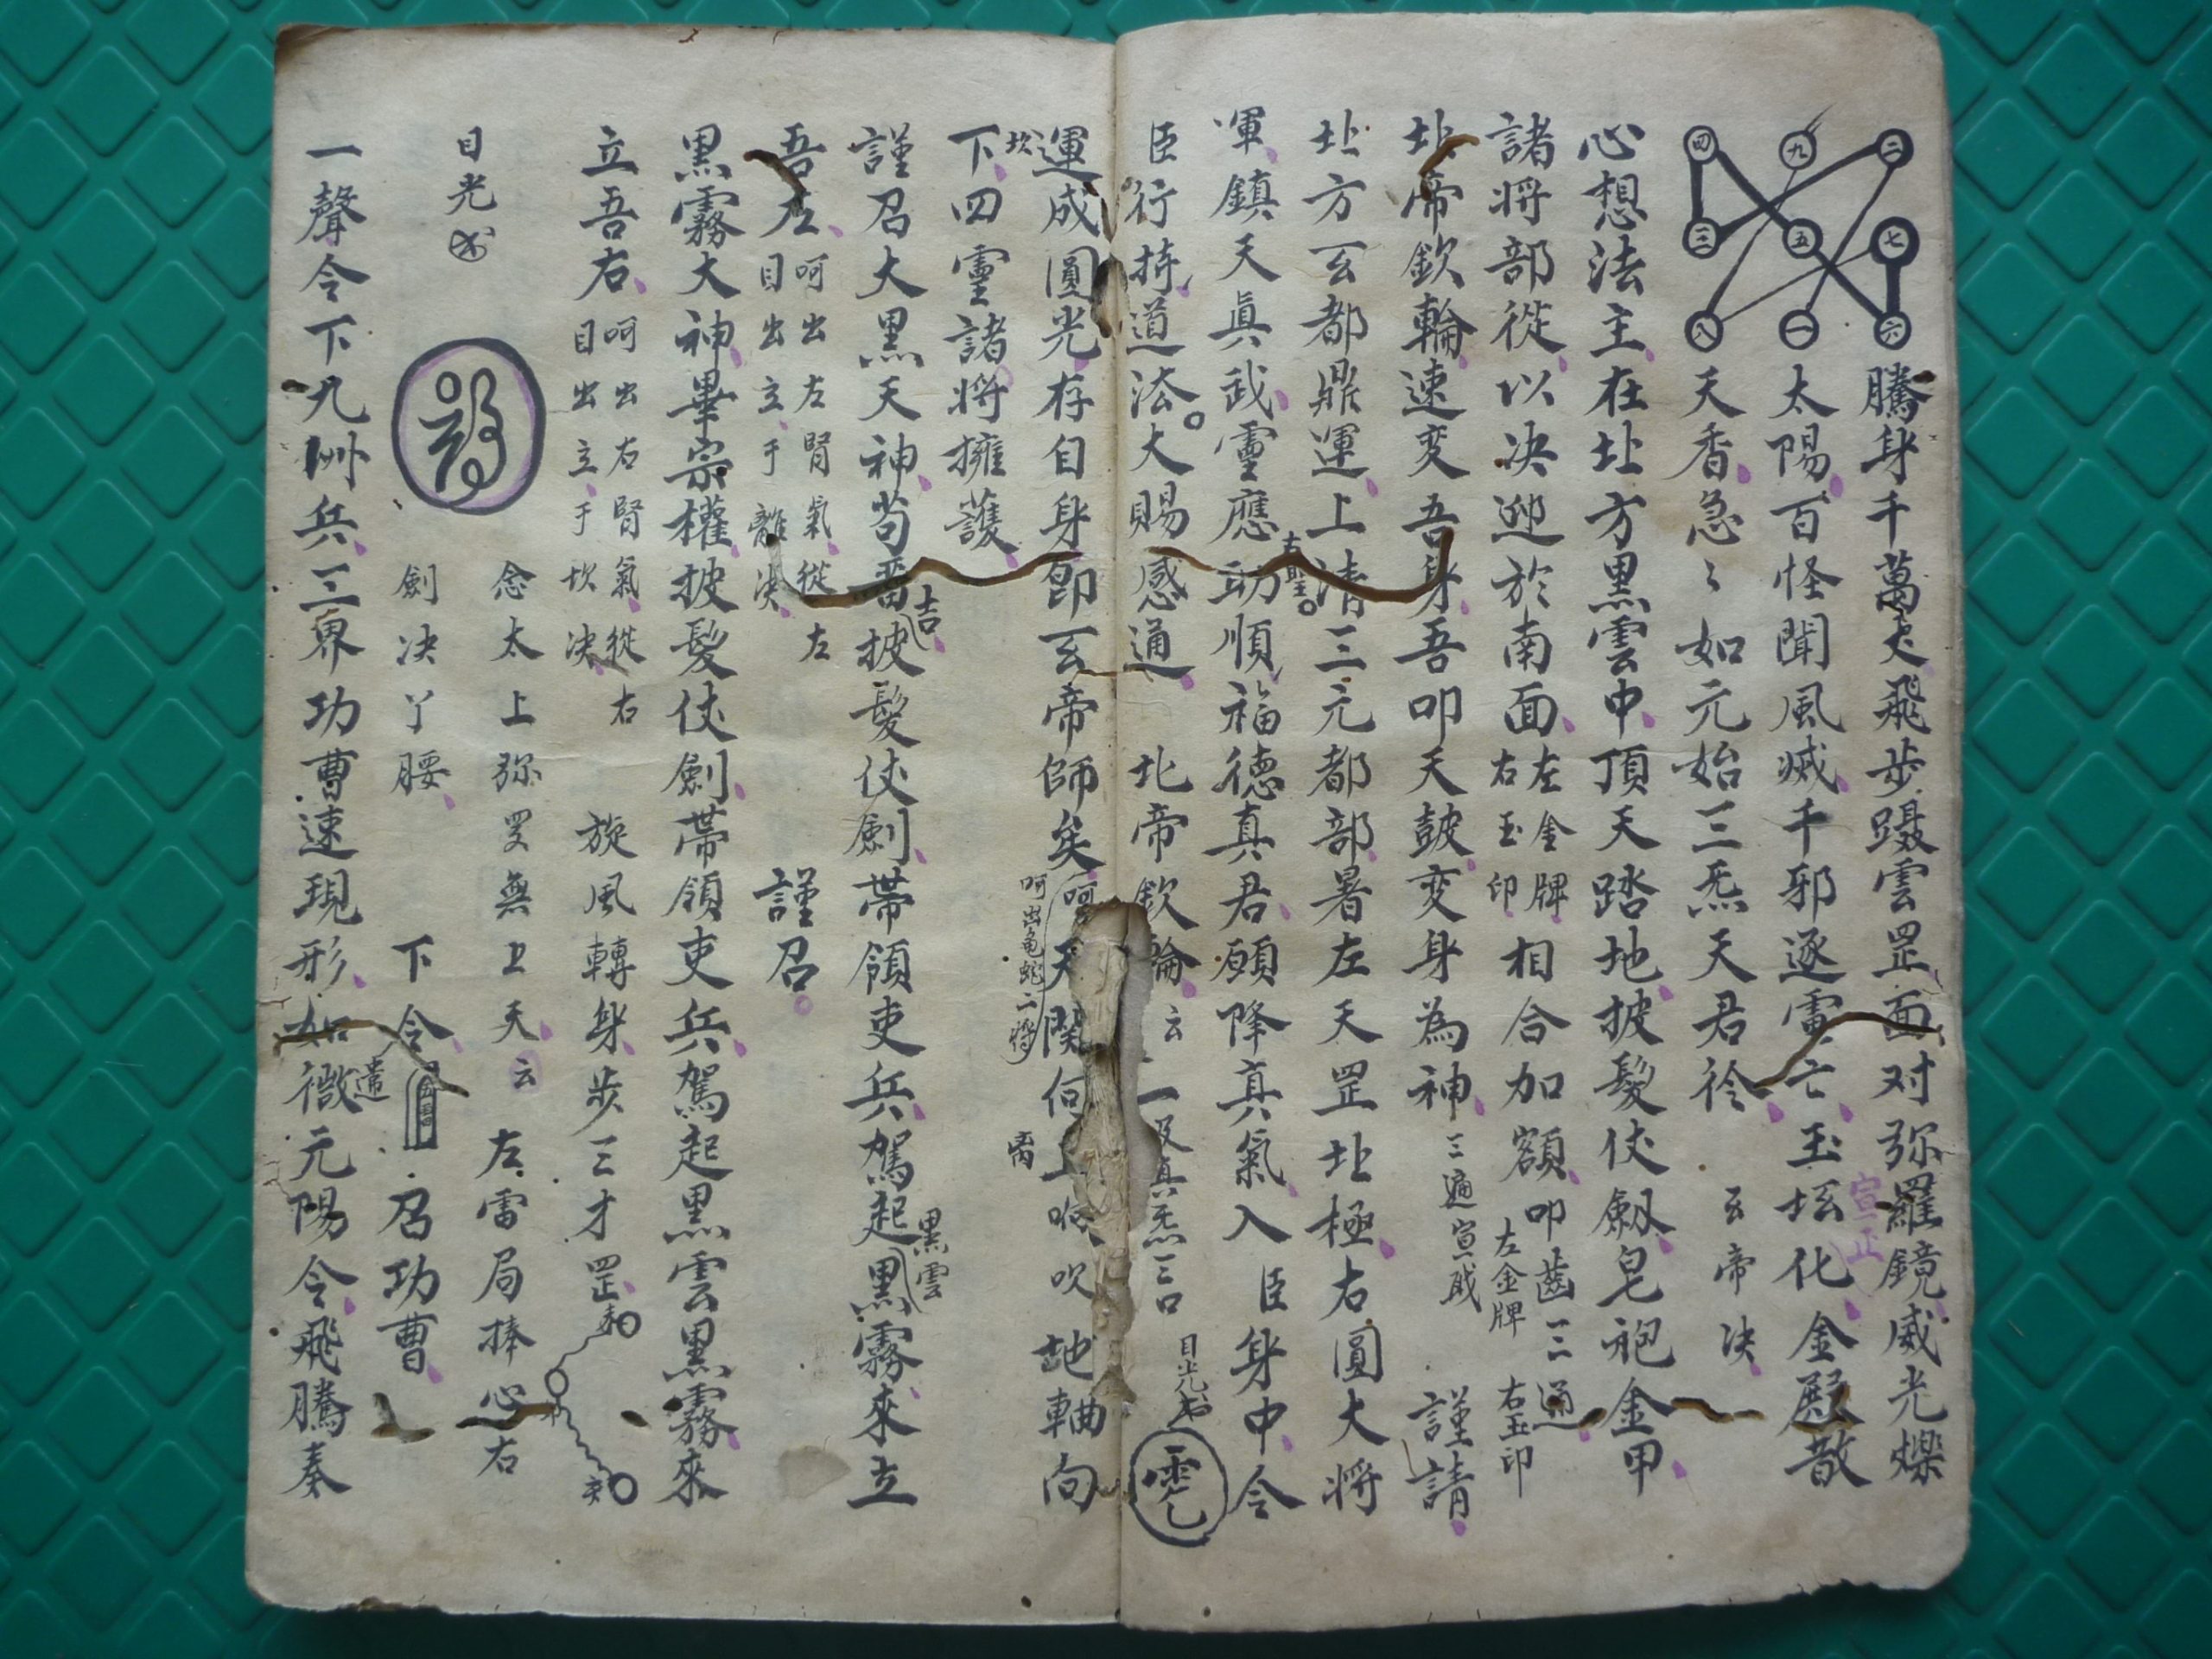 四 九 二
三 五 七
八 一 六
騰身千萬丈飛步蹑雲罡面对弥羅鏡威光爍
太陽百怪聞風滅千邪逐雷亡玉坛化金殿散
宣正
天香急〻如元始三炁天君 云帝决
心想法主在北方黑雲中頂天踏地披髮仗劔皂袍金甲
諸将部從以决迎於南面左金牌右玉印相合加額叩齒三通左金牌右玉印
北帝欽輪速变吾身吾叩天鼓变身為神三遍宣戒 謹請
北方玄都鼎運上清三元都部署左天罡北極右圓大将
軍鎮天眞武靈應助順福德真君願降真氣入臣身中令
右聖
臣行持道法大賜感通 北帝欽輪云一 真炁三口 目光
運成圓光存自身即玄帝師矣 天関 吹地軸向
呵出龜蛇二将
坎
下四靈諸将擁護
謹召大黑天神苟 披髮仗劍帶領吏兵駕起黑霧來立
吉
黑雲
吾左呵出左腎氣從左目出立于離决 謹召
黑霧大神畢宗權披髮仗劍帶領吏兵駕起黑雲黑霧來
立吾右呵出右腎氣從右目出立于坎决 旋風轉身步三才罡
目光 念太上弥罗無上天云 左雷局捧心右
劍决丫腰 下令 召功曹
一聲令下九州兵三界功曹速現形如微元陽令飛騰奏
遣